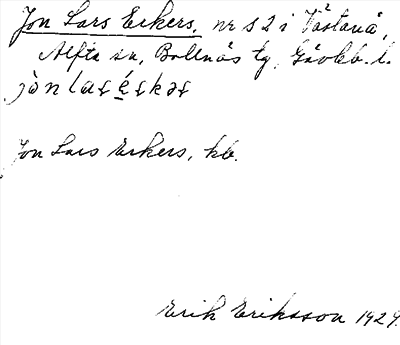 Jon Lars Eskers, nr 52 i Västanå,
Alfta sn, Bollnäs tg, Gävleb. l.
Jon Lars Erkers, kb.
Erik Eriksson 1929.